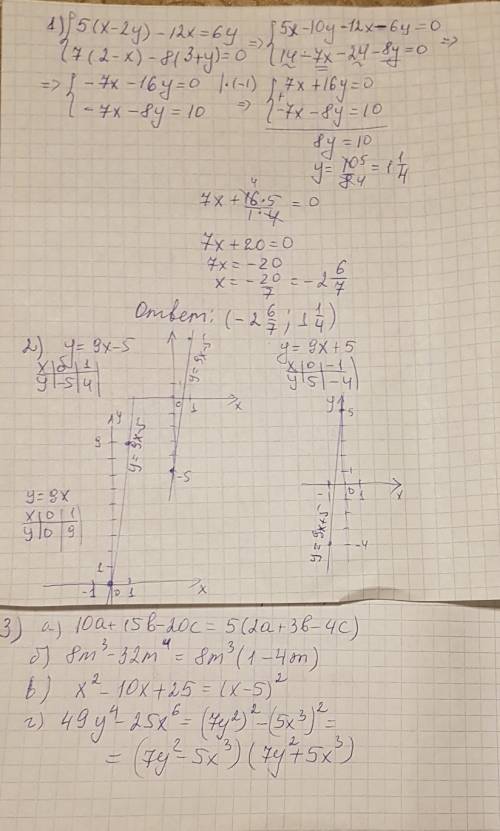 1) {5(x-2y)-12x=6y => {5x-10y-12x-6y=0 =>
{7(2-x)-8(3+y)=0 {14-7x-24-8y=0
=> {-7x-16y=0 |·(-1) => {7x+16y=0
{-7x-8y=10 {-7x-8y=10
+
8y=10
y=10/8=5/4=1 1/4
7x+16·5/1·4=0
4
7x+20=0
7x=-20
x=-20/7=-2 6/7
Ответ: (-2 6/7; 1 1/4)
2) y=9x-5
x|0|1
y|-5|4
y=9x-5
0 1 x
-5
y=9x+5
x|0|-1
y|5|-4
y
5
1
0 1 x
-4
y=9x+5
y=9x
x|0|1
y|0|9
y
9
y=9x-5
1
-1 0 1 x
3) а) 10a+15b-20c=5(2a+3b-4c)
б) 8m³-32m⁴=8m³(1-4m)
в) x²-10x+25=(x-5)²
г) 49y⁴-25x⁶=(7y²)²-(5x³)²=
=(7y²-5x³)(7y²+5x³)